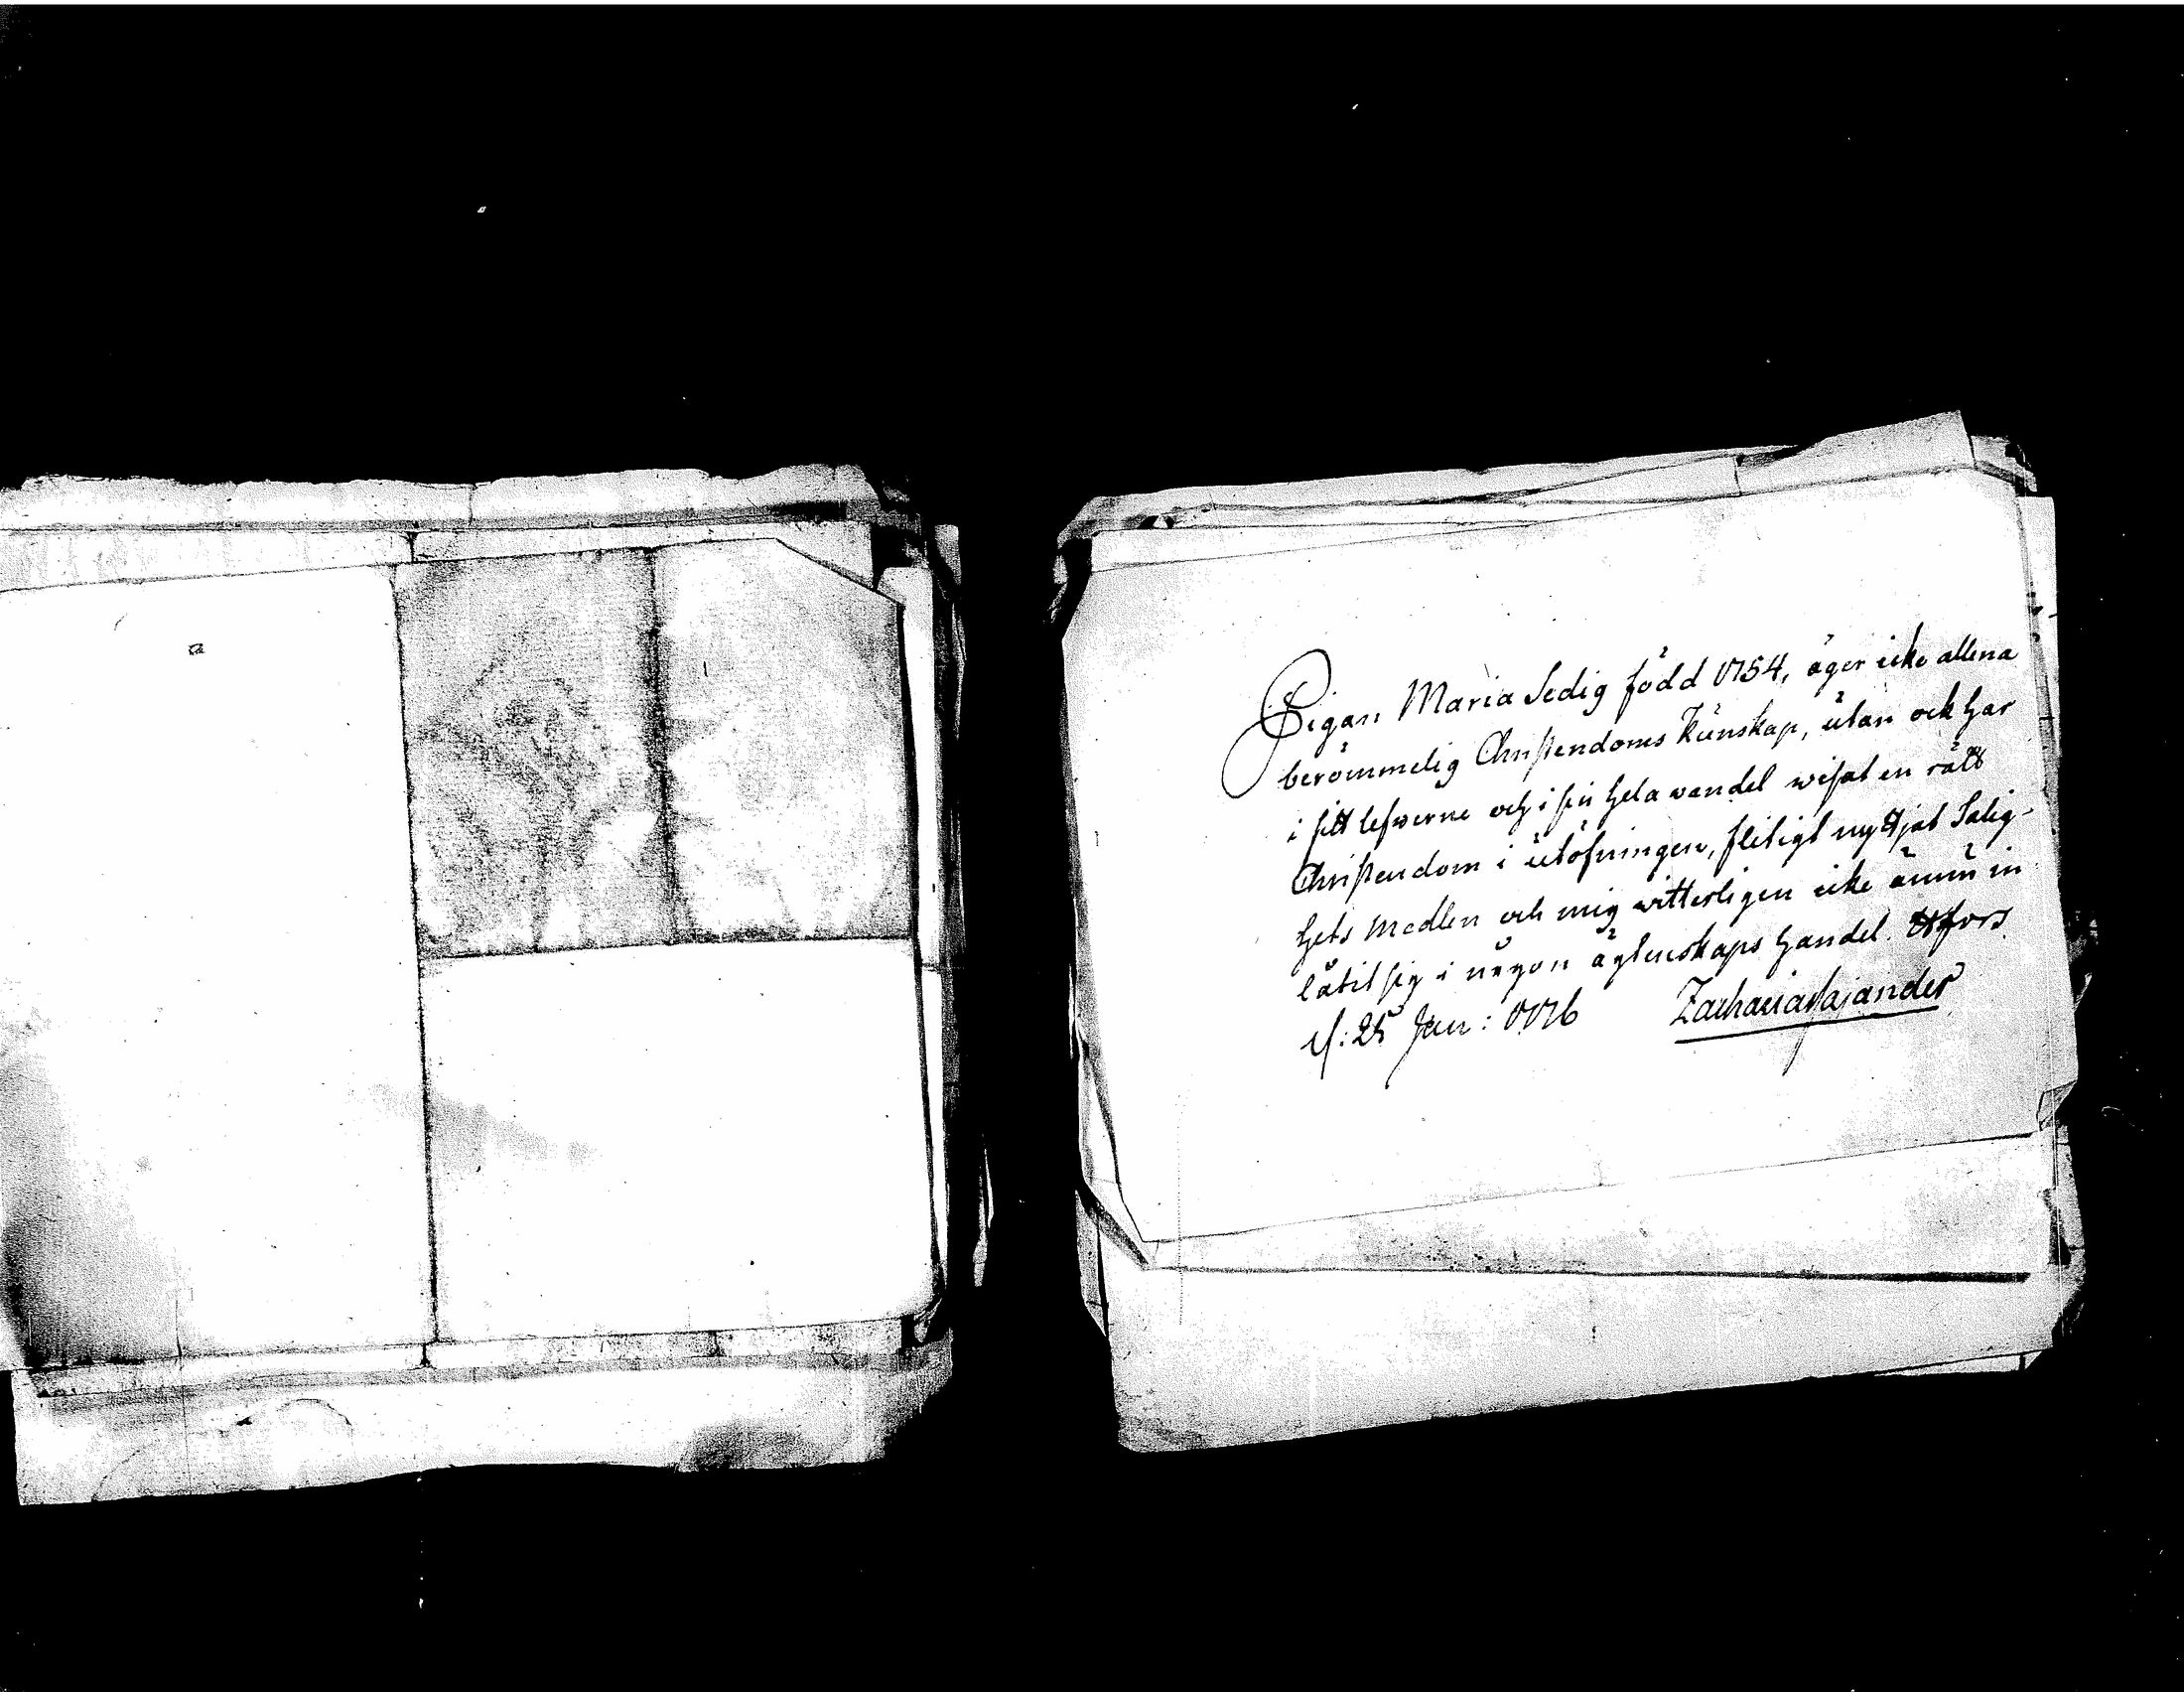 Pigan Maria Sedig född 1754, äger icke allena
berömmelig Christendoms Kunskap, utan ock har
i sitt lefwerne och i sin hela vandel wisat en rätt
Christendom i utöfningen, flitigt nyttjat Salig-
hets medlen och mig witterligen icke ännu in-
låtit sig i någon ägtenskaps handel.
d: 25 Jan: 1776 Zacharias Cajander